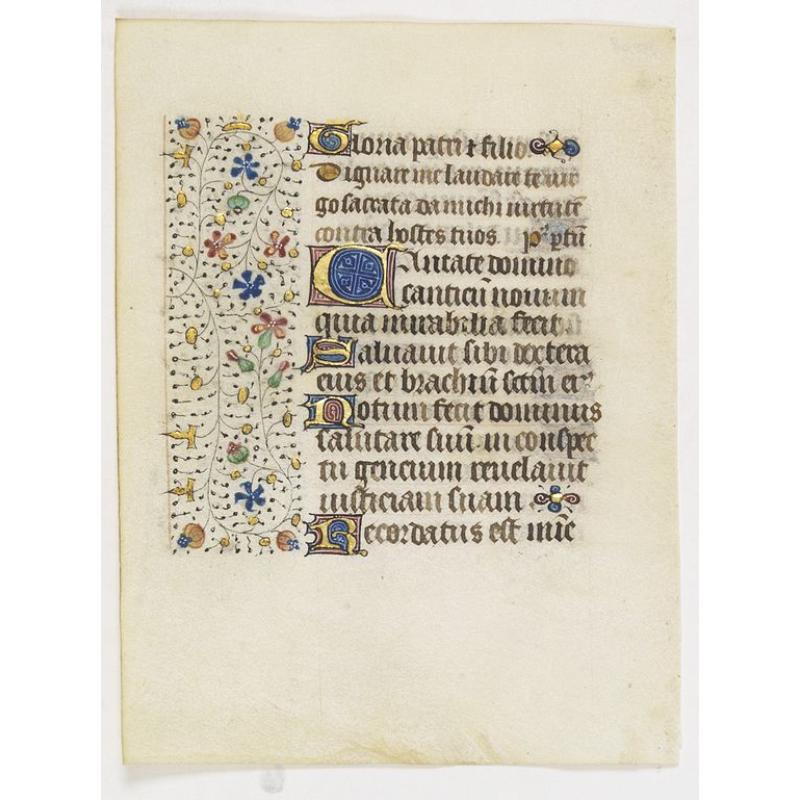 Gloria patri et filio.
Dignare me laudare te vir
go sacrata da michi virtute
contra hostes tuos. ps ptm
Cantate domino
canticu novum
quia mirabilia fecit
Salvavit sibi dextera
eius et brachiu sctm ei9
Notum fecit dominus
salutare suu. in conspec
tu gencium revelavit
iusticiam suam
Recordatus est mie